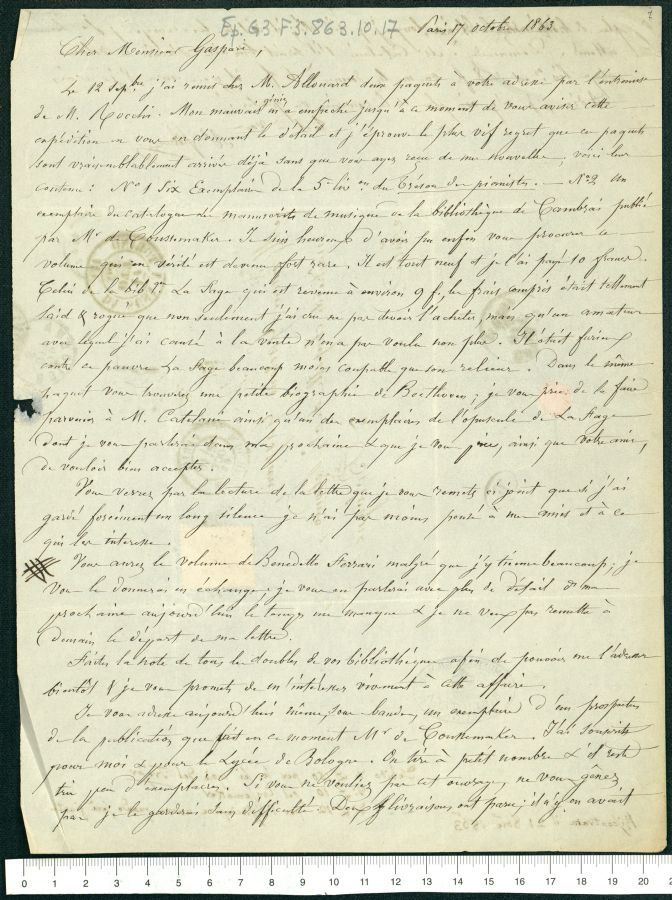 Ep. G3 F3. 863.10.17
Paris 17 octobre 1863
Cher Monsieur Gaspari,
Le 12 Sepbre j'ai remis chez M. Allouard deux paquets à votre adresse par l'entremise
de M. Rocchi. Mon mauvais m'a empêché jusqu'à ce moment de vous aviser cette
expédition en vous en donnant le détail et j'éprouve le plus vif regret que ces paquets
sont vraisemblablement arrivés déjà sans que vous ayez reçu de mes nouvelles; voici leur
contenu: No 1 Six Exemplaires de la 5e livon du Trésor des pianistes. — No 2 Un
exemplaire du catalogue des manuscrits de musique de la bibliothèque de Cambrai publié
par Mr de Coussemaker. Je suis heureux d'avoir pu enfin vous procurer ce
volume qui en vérité est devenu fort rare. Il est tout neuf et je l'ai payé 10 francs.
Celui de la bibl. La Fage qui est revenu à environ 9 f, les frais compris était tellement
laid & rogné que non seulement j'ai cru ne pas devoir l'acheter, mais qu'un amateur
avec lequel j'ai causé à la vente n'en a pas voulu non plus. Il était furieux
contre ce pauvre La Fage beaucoup moins coupable que son relieur. Dans le même
paquet vous trouverez une petite biographie de Beethoven; je vous prie de la faire
parvenir à M. Catelani ainsi qu'un des exemplaires de l'opuscule de La Fage
dont je vous parlerai dans ma prochaine & que je vous prie, ainsi que votre ami,
de vouloir bien accepter.
Vous verrez par la lecture de la lettre que je vous remets ci joint que si j'ai
gardé forcément un long silence je n'ai pas moins pensé à mes amis et à ce
qui les intéresse.
Vous aurez le volume de Benedetto Ferrari malgré que j'y tienne beaucoup; je
vous le donnerai en échange; je vous en parlerai avec plus de détail dans ma
prochaine aujourd'hui le temps me manque & je ne veux pas remettre à
demain le départ de ma lettre.
Faites la note de tous les doubles de vos bibliothèques afin de pouvoir me l'adresser
bientôt & je vous promets de m'intéresser vivement à cette affaire.
Je vous adresse aujourd'hui même, sous bande, un exemplaire d'un prospectus
de la publication que fait en ce moment Mr de Coussemaker. J'ai souscrit
pour moi & pour le Lycée de Bologne. On tire à petit nombre & il reste
très peu d'exemplaires. Si vous ne vouliez pas cet ouvrage, ne vous gênez
pas je le garderai sans difficulté. Deux livraisons ont paru; il n'y en avait
0 1 2 3 4 5 6 7 8 9 10 11 12 13 14 15 16 17 18 19 20